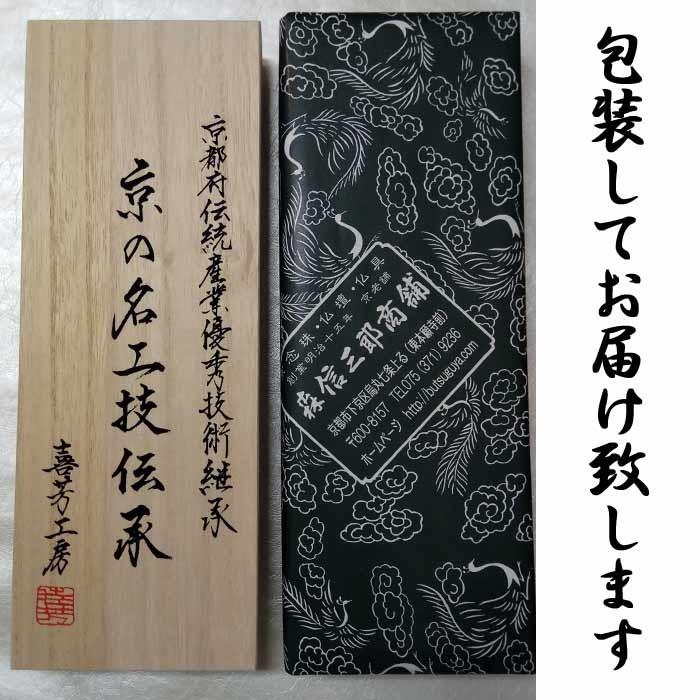 京都府伝統産業優秀技術継承
京の名工技伝承
喜芳工房
念珠・仏壇・仏具
創業明治十五年 京老舗
森信三郎商舗
京都市下京区烏丸七条上る(東本願寺前)
〒600-8157 TEL075(371)9236
ホームページ http://butsuguya.com
包装してお届け致します